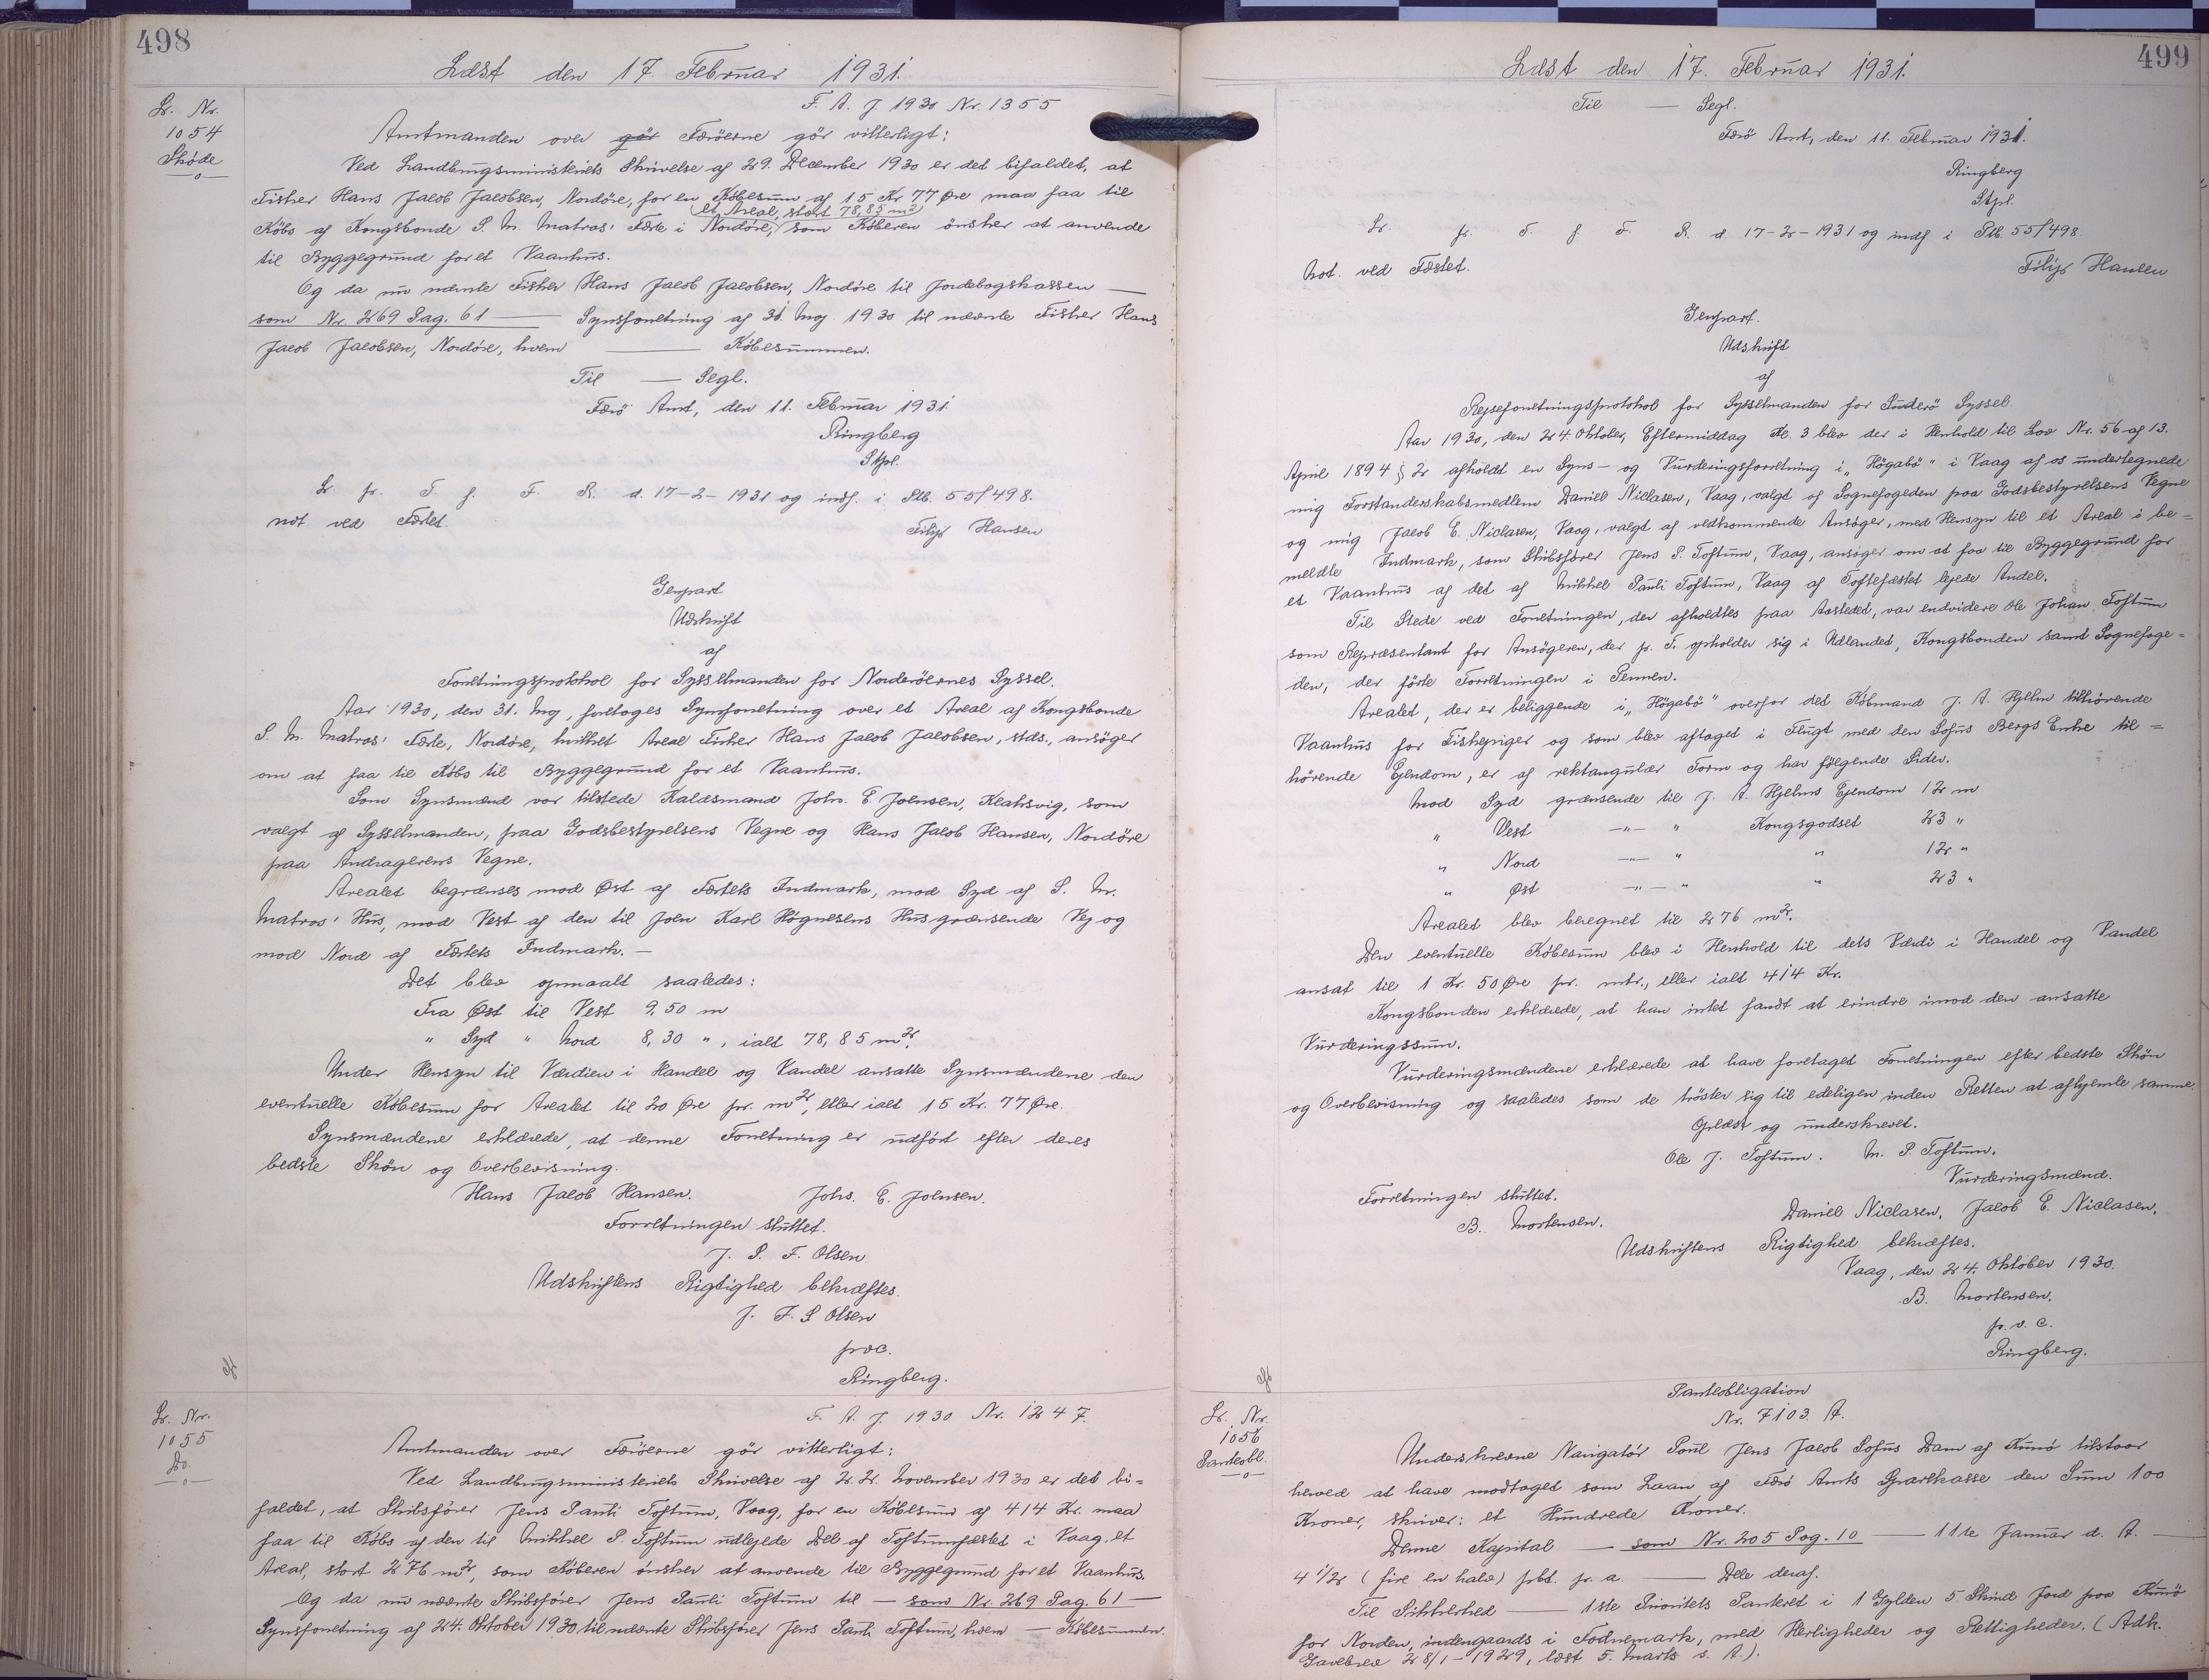 498
Læst den 17. Februar 1931.
Lr. Nr.
1054
Skøde
F. A. J 1930 Nr. 1355
Amtmanden over gör Færöerne gör vitterligt:
Ved Landbrugsministeriets Skrivelse af 29. December 1930 er det bifaldet, at
Fisker Hans Jacob Jacobsen, Nordöre, for en Købesum af 15 Kr. 77 Øre maa faa til
et Areal, stort 78,85 m2
Köbs af Kongsbonde S. M. Matras' Fæste i Nordöre, som Köberen önsker at anvende
til Byggegrund for et Vaanhus.
Og da nu nævnte Fisker Hans Jacob Jacobsen, Nordöre til Jordebogskassen —
som Nr. 269 Pag. 61 — Synsforretning af 31. Maj 1930 til nævnte Fisker Hans
Jacob Jacobsen, Nordöre, hvem — Købesummen.
Til — Segl.
Færö Amt, den 11. Februar 1931.
Ringberg
Stpl.
Lr. fr. T. f. F. R. d. 17-2-1931 og indf. i Ptb. 55/498.
not. ved Fæstet.
Filip Hansen
Genpart
Udskrift
af
Forretningsprotokol for Sysselmanden for Norderöernes Syssel.
Aar 1930, den 31. Maj, foretoges Synsforretning over et Areal af Kongsbonde
S. M. Matras' Fæste, Nordöre, hvilket Areal Fisker Hans Jacob Jacobsen, stds., ansöger
om at faa til Köbs til Byggegrund for et Vaanhus.
Som Synsmænd var tilstede Kaldsmand Johs. E. Joensen, Klaksvig, som
valgt af Sysselmanden, paa Godsbestyrelsens Vegne og Hans Jacob Hansen, Nordöre
paa Andragerens Vegne.
Arealet begrænses mod Øst af Fæstets Indmark, mod Syd af S. M.
Matras' Hus, mod Vest af den til Joen Karl Högnesens Hus grænsende Vej og
mod Nord af Fæstets Indmark. —
Det blev opmaalt saaledes:
Fra Øst til Vest 9,50 m
" Syd " Nord 8,30 ", ialt 78,85 m2.
Under Hensyn til Værdien i Handel og Vandel ansatte Synsmændene den
eventuelle Købesum for Arealet til 20 Øre pr. m2, eller ialt 15 Kr. 77 Øre.
Synsmændene erklærede, at denne Forretning er udført efter deres
bedste Skön og Overbevisning.
Hans Jacob Hansen. Johs. E. Joensen.
Forretningen sluttet.
J. P. F. Olsen
Udskriftens Rigtighed bekræftes.
J. F. P Olsen
pvc.
Ringberg.
Lr. Nr.
1055
Do.
F. A. J. 1930 Nr. 1247.
Amtmanden over Færöerne gör vitterligt:
Ved Landbrugsministeriets Skrivelse af 22. November 1930 er det bi=
faldet, at Skibsfører Jens Pauli Toftum, Vaag, for en Købesum af 414 Kr. maa
faa til Köbs af den til Mikkel P. Toftum udlejede Del af Toftumfæstet i Vaag, et
Areal, stort 276 m2, som Köberen önsker at anvende til Byggegrund for et Vaanhus.
Og da nu nævnte Skibsfører Jens Pauli Toftum til — som Nr. 269 Pag. 61 —
Synsforretning af 24. Oktober 1930 til nævnte Skibsfører Jens Pauli Toftum, hvem — Købesummen.
499
Læst den 17. Februar 1931.
Til — Segl.
Færö Amt, den 11. Februar 1931.
Ringberg
Stpl.
Lr. fr. T. f. F. R. d. 17-2-1931 og indf. i Ptb. 55/498.
Not. ved Fæstet.
Filip Hansen
Genpart.
Udskrift
af
Rejseforretningsprotokol for Sysselmanden for Suderö Syssel.
Aar 1930, den 24. Oktober, Eftermiddag Kl. 3 blev der i Henhold til Lov Nr. 56 af 13.
April 1894 § 2 afholdt en Syns- og Vurderingsforretning i „Högabö" i Vaag af os undertegnede
mig Forstanderskabsmedlem Daniel Niclasen, Vaag, valgt af Sognefogeden paa Godsbestyrelsens Vegne
og mig Jacob E. Niclasen, Vaag, valgt af vedkommende Ansöger, med Hensyn til et Areal i be=
meldte Indmark, som Skibsfører Jens P. Toftum, Vaag, ansöger om at faa til Byggegrund for
et Vaanhus af det af Mikkel Pauli Toftum, Vaag af Toftefæstet lejede Andel.
Til Stede ved Forretningen, der afholdtes paa Aastedet, var endvidere Ole Johan Toftum
som Repræsentant for Ansögeren, der p. T. opholder sig i Udlandet, Kongsbonden samt Sognefoge=
den, der förte Forretningen i Pennen.
Arealet, der er beliggende i „Högabö" overfor det Købmand J. A. Hjelm tilhörende
Vaanhus for Fiskepiger og som blev aftaget i Flugt med den Sofus Bergs Enke til=
hörende Ejendom, er af rektangulær Form og har følgende Sider.
Mod Syd grænsende til J. A. Hjelms Ejendom 12 m
" Vest —"— " Kongsgodset 23 "
" Nord —"— " " 12 "
" Øst —"— " " 23 "
Arealet blev beregnet til 276 m2.
Den eventuelle Købesum blev i Henhold til dets Værdi i Handel og Vandel
ansat til 1 Kr. 50 Øre pr. mtr., eller ialt 414 Kr.
Kongsbonden erklærede, at han intet fandt at erindre imod den ansatte
Vurderingssum.
Vurderingsmændene erklærede at have foretaget Forretningen efter bedste Skön
og Overbevisning og saaledes som de tröster sig til edeligen inden Retten at afhjemle samme.
Oplæst og underskrevet.
Ole J. Toftum. M. P. Toftum.
Vurderingsmænd.
Forretningen sluttet.
Daniel Niclasen. Jacob E. Niclasen.
B. Mortensen.
Udskriftens Rigtighed bekræftes.
Vaag, den 24. Oktober 1930.
B. Mortensen.
p. v. c.
Ringberg.
Lr. Nr.
1056
Panteobl.
Panteobligation
Nr. 7103. A.
Underskrevne Navigatör Poul Jens Jacob Sofus Dam af Kunö tilstaar
herved at have modtaget som Laan af Færö Amts Sparekasse den Sum 100
Kroner, skriver: et Hundrede Kroner.
Denne Kapital — som Nr. 205 Pag. 10 — 11te Januar d. A. —
4 1/2 (fire en halv) pct. p. a. — Dele deraf.
Til Sikkerhed — 1ste Prioritets Panteret i 1 Gylden 5 Skind Jord paa Kunö
for Norden, indengaards i Fodnemark, med Herligheder og Rettigheder. (Adk.
Gavebrev 28/1-1929, læst 5. Marts s. A.).